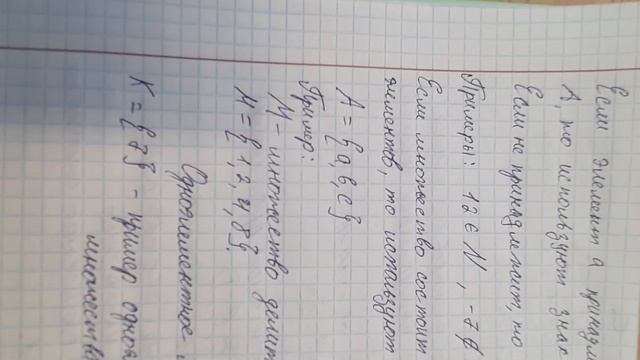 Если элемент а принад
А, то используют знак
Если не принадлежит, то
Примеры: 12 ∈ N, -7 ∉
Если множество состоит
элементов, то используют
А = {а, в, с}
Пример:
М - множество делит
М = {1, 2, 4, 8}.
Одноэлементное
К = {7} - пример одноэ
множеств